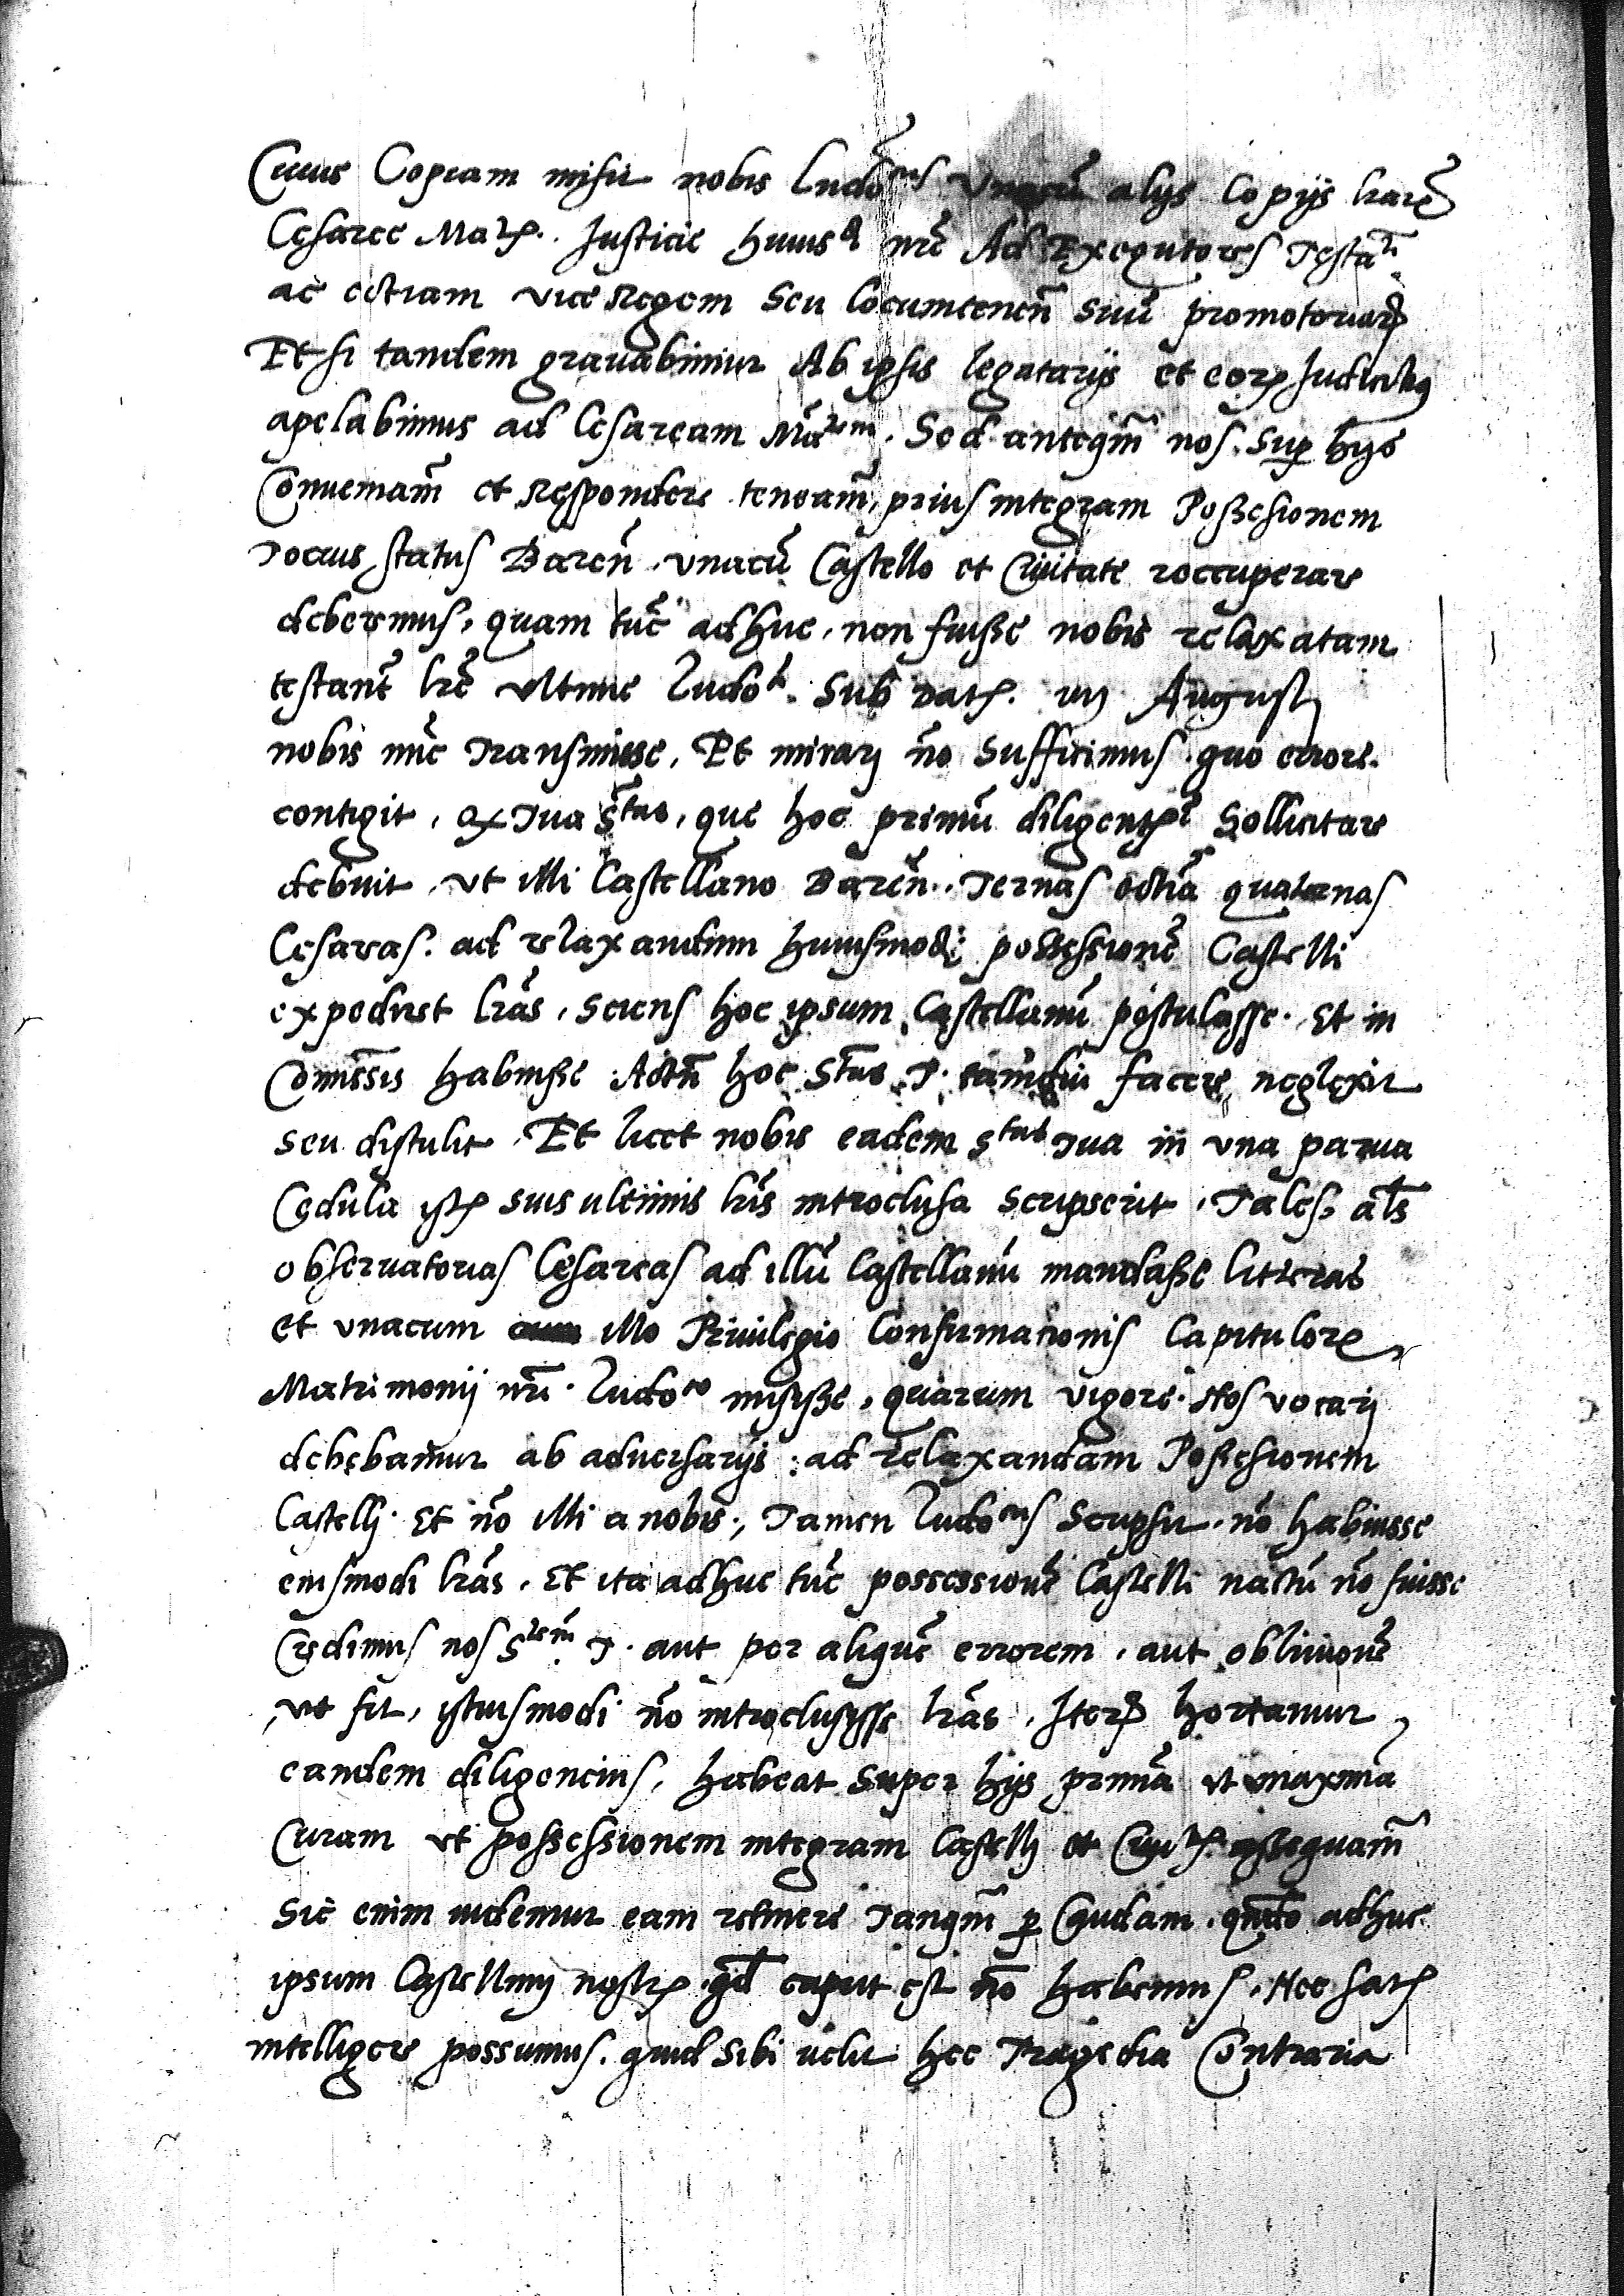 Cuius Copiam misit nobis Ludo^cus vnacũ alijs Copijs lrarũ
Cęsaree Mat̃. Iusticie huius nr̃e Ad Exequtores Testat̃
ac ectiam vice Regem seu Locumtenen̄ suũ promotoriar̃
Et si tandem grauabimur Ab ipsis legatarijs et eor̃ Iudicibꝫ
apelabimus ad Cesaream Ma^tem. Sed anteqm̃ nos. suꝑ hijs
Conueniam̃ et Respondere teneam̃, prius integram Poßesionem
Tocius status Baren̄. vnacũ Castello et Ciuitate reccuperare
deberemus, quam tũc adhuc, non fuiße nobis relaxatam
testant̃ lr̃e vltime Ludo^ci. Sub dat̃. iiij August̃
nobis nũc Transmisse, Et mirarj nõ sufficimus quo errore
contigit, q̃ Tua S^tas, que hoc primũ diligent̃ Sollicitare
debuit, vt illi Castellano Baren̄. Ternas ectiã quaternas
Cęsareas. ad relaxandum huiusmodi possessionẽ Castelli
expediret lr̃as, sciens hoc ipsum Castellanũ postulasse. Et in
Comissis habuiße. Actñ hoc S^tas T. tamdiu facere neglexit
seu distulit. Et licet nobis eadem S^tas Tua in vna parua
Cędula ist̃ suis ultimis lr̃is introclusa scripserit, Tales, al̃s
obseruatorias Cęsareas ad illũ Castellanũ mandaße litteras
et vnacum illo Priuilegio Confirmationis Capitulor̃
Matrimonij nr̃i. Ludo^co misiße, quarum vigore. Nos vocarj
debebamur ab aduersarijs: ad relaxandam Poßesionem
Castellj. Et nõ illi a nobis., Tamen Ludo^cus Scripsit. nõ habuisse
eiusmodi lr̃as. Et ita adhuc tũc possessionẽ Castelli nactũ nõ fuisse
Credimus nos S^tem T. aut per aliquẽ errorem, aut obliuionẽ
, vt fit, istiusmodi nõ introclusisse lr̃as. Iter̃ hortamur,
eandem diligencius, habeat super hijs primã vt maxima
Curam vt possessionem integram Castellj et Ciuit̃. assequam̃
Sic enim uidemur eam retinere Tanqm̃ ꝑ Caudam. qñdo adhuc
ipsum Castellum nostr̃. qd̃ caput est nõ habemus. Nec sat̃
intelligere possumus. quid sibi uelit hec Tragedia Contraria